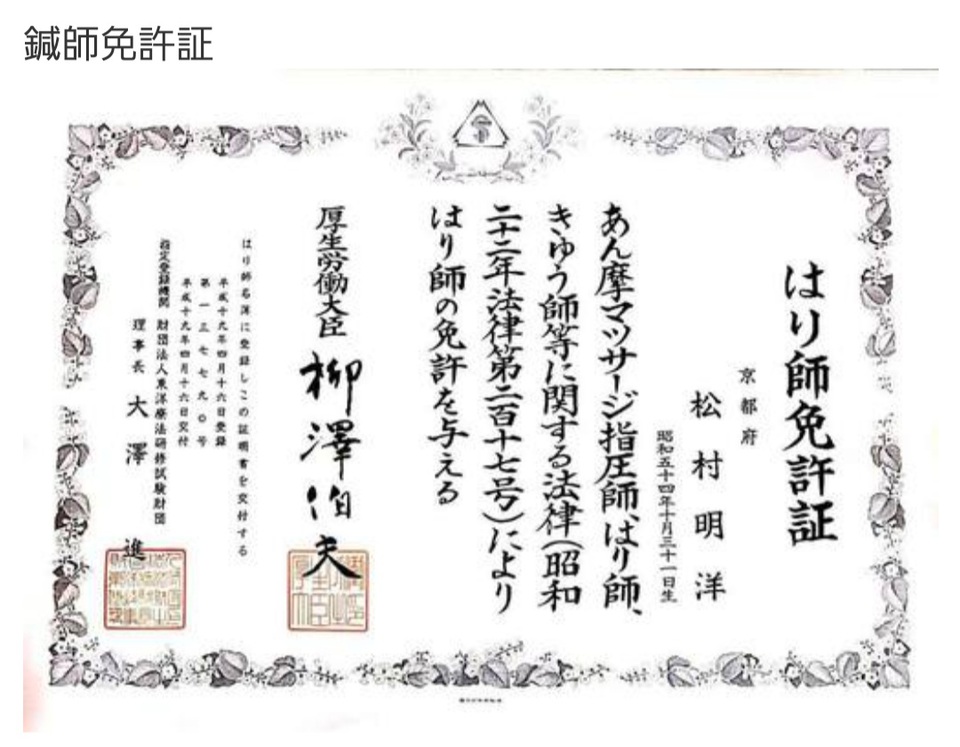 鍼師免許証
はり師免許証
京都府
松村明洋
昭和五十四年十月三十一日生
あん摩マツサージ指圧師、はり師、
きゆう師等に関する法律(昭和
二十二年法律第二百十七号)により
はり師の免許を与える
厚生労働大臣 柳澤伯夫
はり師名簿に登録しこの証明書を交付する
平成十九年四月十六日登録
第一三七七九〇号
平成十九年四月十六日交付
指定登録機関 財団法人東洋療法研修試験財団
理事長 大澤 進